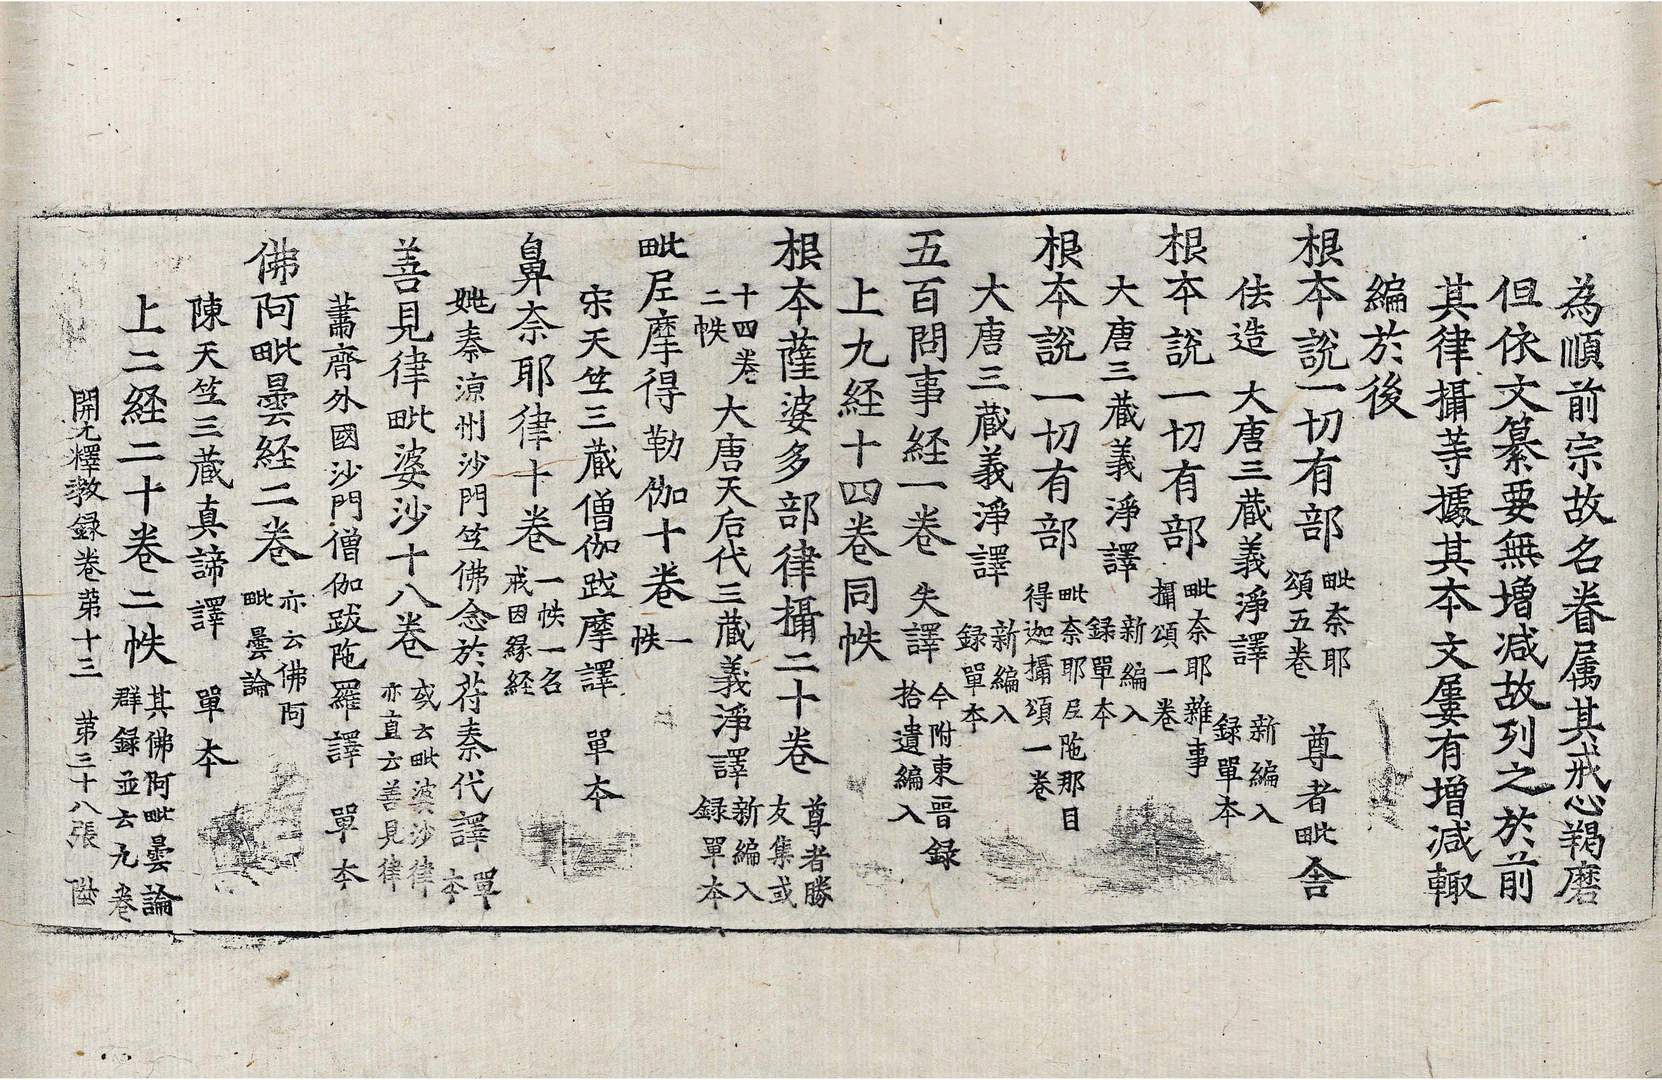 為順前宗故名眷属其戒心羯磨
但依文纂要無増減故列之於前
其律攝等據其本文屢有増減輙
編於後
根本說一切有部毗奈耶頌五卷 尊者毗舍
佉造 大唐三藏義淨譯 新編入録單本
根本說一切有部毗奈耶雜事攝頌一卷
大唐三藏義淨譯 新編入録單本
根本說一切有部毗奈耶尼陁那目得迦攝頌一卷
大唐三藏義淨譯 新編入録單本
五百問事経一卷 失譯 今附東晉録拾遺編入
上九経十四卷同帙
根本薩婆多部律攝二十卷 尊者勝友集或
十四卷二帙 大唐天后代三藏義淨譯 新編入録單本
毗尼摩得勒伽十卷 一帙
宋天竺三藏僧伽跋摩譯 單本
鼻奈耶律十卷 一帙一名戒因縁経
姚秦涼州沙門竺佛念於苻秦代譯 單本
善見律毗婆沙十八卷 或云毗婆沙律亦直云善見律
蕭齊外國沙門僧伽跋陁羅譯 單本
佛阿毗曇経二卷 亦云佛阿毗曇論
陳天竺三藏真諦譯 單本
上二経二十卷二帙 其佛阿毗曇論群録並云九卷
開元釋教録卷苐十三 苐三十八張